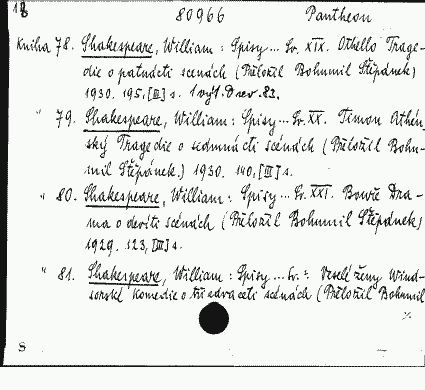 80966 Pantheon
Kniha 78. Shakespeare, William: Spisy... Sv. XIX. Othello Trage-
die o patnácti scenách (Přeložil Bohumil Štěpánek)
1930. 195, [III] s. 1 výt. Dřev. 83.
" 79. Shakespeare, William: Spisy... Sv. XX. Timon Athén-
ský Tragedie o sedmnácti scénách (Přeložil Bohu-
mil Štěpánek.) 1930. 140, [III] s.
" 80. Shakespeare, William: Spisy... Sv. XXI. Bouře Dra-
ma o devíti scénách (Přeložil Bohumil Štěpánek)
1929. 123, [III] s.
" 81. Shakespeare, William: Spisy... Sv. : Veselé ženy Wind-
sorské Komedie o třiadvaceti scénách (Přeložil Bohumil
%
S